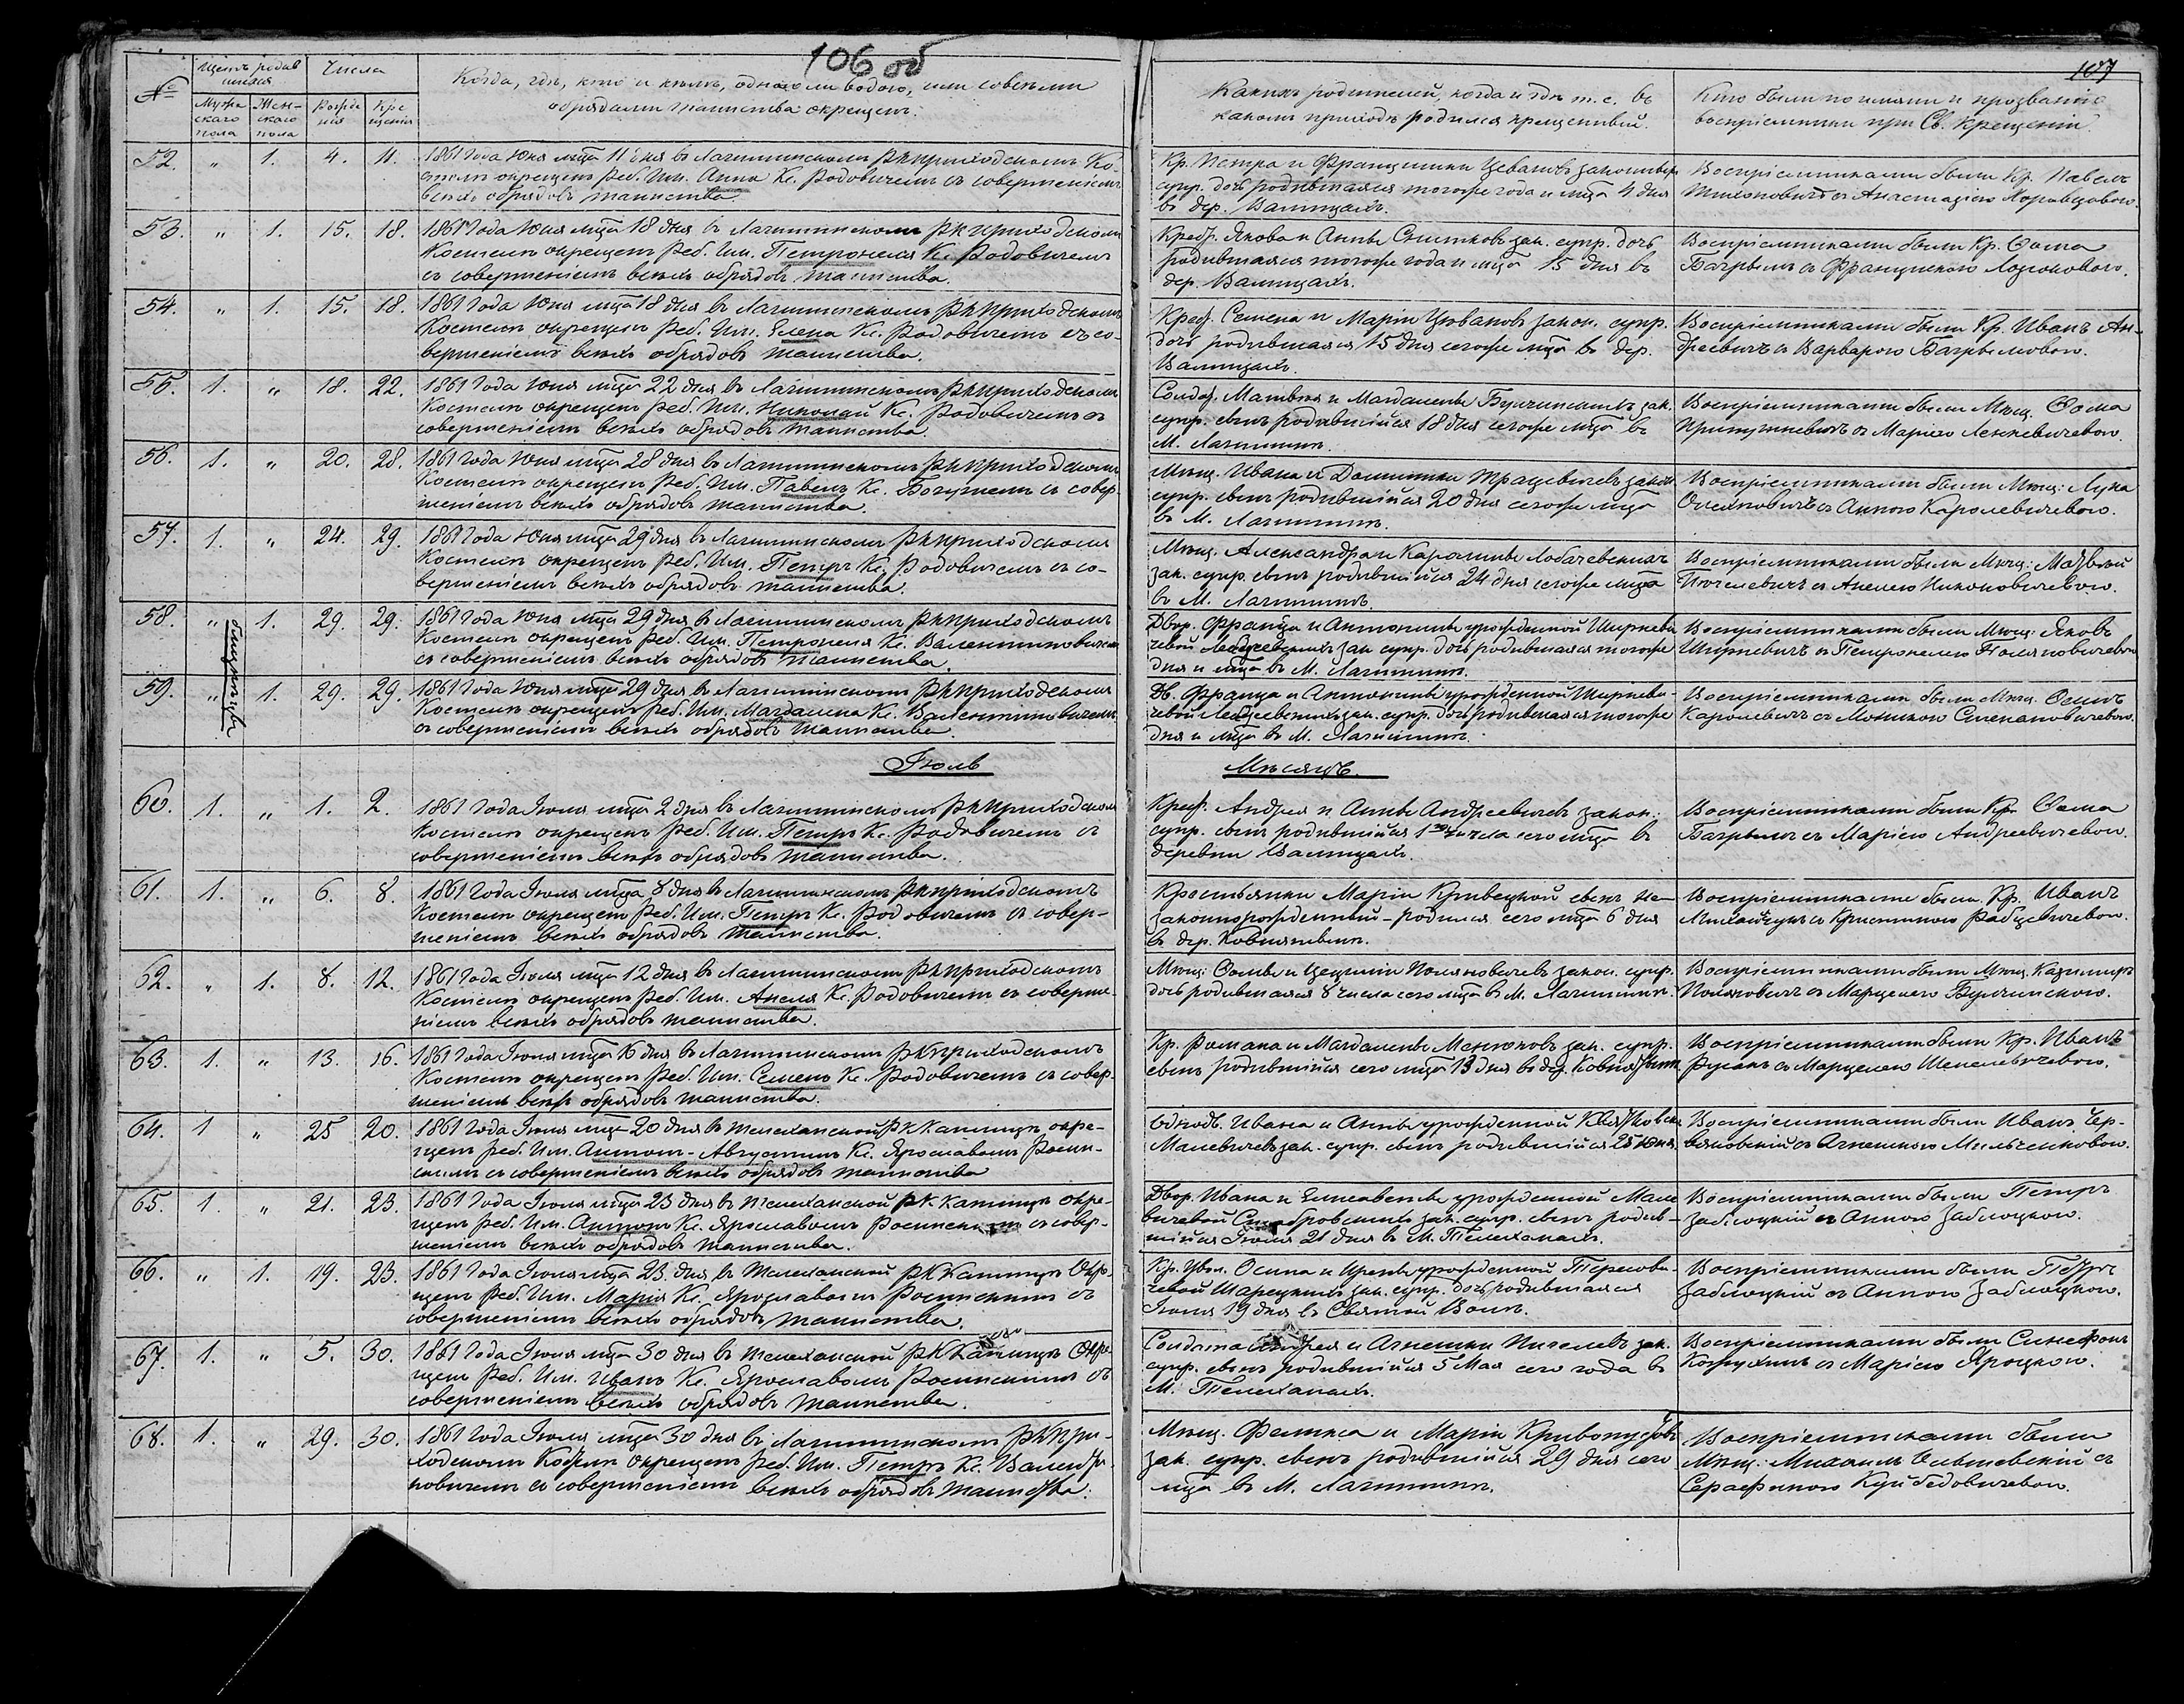 106 об
107
№
Щетъ родив
шихся
Числа
Когда, гдѣ, кто и кѣмъ, одною ли водою, или со всѣми
обрядами таинства окрещенъ.
Муже
скаго
пола
Жен-
скаго
пола
Рожде
нія
Кре
щенія
Какихъ родителей, когда и гдѣ т. е. въ
какомъ приходѣ родился крещенный.
Кто были по имяни и прозванію
воспріемники при Св. Крещеніи.
52. " 1. 4. 11.
1861 года Юня мѣца 11 дня въ Логишинскомъ РК приходскомъ Ко-
стелѣ окрещенъ Реб. Им. Анна Кс. Родовичемъ съ совершеніемъ
всѣхъ обрядовъ таинства.
Кр. Петра и Францишки законныхъ
супр. дочь родившаяся тогоже года и мѣца 4 дня
въ дер. Валищахъ.
Воспріемниками были Кр. Павелъ
съ Анастазіею
53. " 1. 15. 18.
1861 года Юня мѣца 18 дня въ Логишинскомъ РК приходскомъ
Костелѣ окрещенъ Реб. Им. Петронеля Кс. Родовичемъ
съ совершеніемъ всѣхъ обрядовъ таинства.
Крест. Якова и Анны зак. супр. дочь
родившаяся тогоже года и мѣца 15 дня въ
дер. Валищахъ.
Воспріемниками были Кр. Ѳома
съ Францишкою
54. " 1. 15. 18.
1861 года Юня мѣца 18 дня въ Логишинскомъ РК приходскомъ
Костелѣ окрещенъ Реб. Им. Елена Кс. Родовичемъ съ со-
вершеніемъ всѣхъ обрядовъ таинства.
Крест. Семена и Маріи закон. супр.
дочь родившаяся 15 дня сегоже мѣца въ дер.
Валищахъ.
Воспріемниками были Кр. Иванъ Ан-
дреевичъ съ Варварою
55. 1. " 18. 22.
1861 года Юня мѣца 22 дня въ Логишинскомъ РК приходскомъ
Костелѣ окрещенъ Реб. Им. Николай Кс. Родовичемъ съ
совершеніемъ всѣхъ обрядовъ таинства.
Солдат. Матвея и Магдалены зак.
супр. сынъ родившійся 18 дня сегоже мѣца въ
М. Логишинѣ.
Воспріемниками были Мѣщ. Ѳома
съ Маріею Ленкевичевою.
56. 1. " 20. 28.
1861 года Юня мѣца 28 дня въ Логишинскомъ РК приходскомъ
Костелѣ окрещенъ Реб. Им. Павелъ Кс. съ совер-
шеніемъ всѣхъ обрядовъ таинства.
Мѣщ. Ивана и Доминики Трацевичевъ закон.
супр. сынъ родившійся 20 дня сегоже мѣца
въ М. Логишинѣ.
Воспріемниками были Мѣщ: Лука
съ Анною Каролевичевою.
57. 1. " 24. 29.
1861 года Юня мѣца 29 дня въ Логишинскомъ РК приходскомъ
Костелѣ окрещенъ Реб. Им. Петръ Кс. Родовичемъ съ со-
вершеніемъ всѣхъ обрядовъ таинства.
Мѣщ. Александра и Каролины Лобачевскихъ
зак. супр. сынъ родившійся 24 дня сегоже мѣца
въ М. Логишинѣ.
Воспріемниками были Мѣщ: Матвѣй
съ Анелею
близнецы
58. " 1. 29. 29.
1861 года Юня мѣца 29 дня въ Логишинскомъ РК приходскомъ
Костелѣ окрещенъ Реб. Им. Петронеля Кс. Валентиновичемъ
съ совершеніемъ всѣхъ обрядовъ таинства.
Двор. Франца и Антонины урожденной Ширневи
чевой зак. супр. дочь родившаяся тогоже
дня и мѣца въ М. Логишинѣ.
Воспріемниками были Мѣщ: Яковъ
Ширневичъ съ Петронелею
59. " 1. 29. 29.
1861 года Юня мѣца 29 дня въ Логишинскомъ РК приходскомъ
Костелѣ окрещенъ Реб. Им. Магдалена Кс. Валентиновичемъ
съ совершеніемъ всѣхъ обрядовъ таинства.
Дв. Франца и Антонины урожденной Ширневи-
чевой зак. супр. дочь родившаяся тогоже
дня и мѣца въ М. Логишинѣ.
Воспріемниками были Мѣщ. Осипъ
Каролевичъ съ Степановичевою.
Іюль
Мѣсяцъ.
60. 1. " 1. 2.
1861 года Іюля мѣца 2 дня въ Логишинскомъ РК приходскомъ
Костелѣ окрещенъ Реб. Им. Петръ Кс. Родовичемъ съ
совершеніемъ всѣхъ обрядовъ таинства.
Крест. Андрея и Анны Андреевичевъ закон.
супр. сынъ родившійся 1го числа сего мѣца въ
деревни Валищахъ.
Воспріемниками были Кр. Ѳома
съ Маріею Андреевичевою.
61. 1. " 6. 8.
1861 года Іюля мѣца 8 дня въ Логишинскомъ РК приходскомъ
Костелѣ окрещенъ Реб. Им. Петръ Кс. Родовичемъ съ совер-
шеніемъ всѣхъ обрядовъ таинства.
Крестьянки Маріи Кривецкой сынъ не-
законнорожденный - родился сего мѣца 6 дня
въ дер.
Воспріемниками были Кр. Иванъ
съ Христиною Рабцевичевою.
62. " 1. 8. 12.
1861 года Іюля мѣца 12 дня въ Логишинскомъ РК приходскомъ
Костелѣ окрещенъ Реб. Им. Анеля Кс. Родовичемъ съ соверше-
ніемъ всѣхъ обрядовъ таинства.
Мѣщ: Ѳомы и Цециліи Поляновичевъ закон. супр.
дочь родившаяся 8 числа сего мѣца въ М. Логишинѣ.
Воспріемниками были Мѣщ. Казимиръ
Поляновичъ съ Марцелею
63. 1. " 13. 16.
1861 года Іюля мѣца 16 дня въ Логишинскомъ РК приходскомъ
Костелѣ окрещенъ Реб. Им. Семенъ Кс. Родовичемъ съ совер-
шеніемъ всѣхъ обрядовъ таинства.
Кр. Романа и Магдалены зак. супр.
сынъ родившійся сего мѣца 13 дня въ дер.
Воспріемниками были Кр. Иванъ
Русакъ съ Марцелею
64. 1 " 25 20.
1861 года Іюля мѣца 20 дня въ Телеханской РК Каплицѣ окре-
щенъ Реб. Им. Антонъ-Августинъ Кс. Ярославомъ Росин-
скимъ съ совершеніемъ всѣхъ обрядовъ таинства
Однодв. Ивана и Анны урожденной
Малевичевъ зак. супр. сынъ родившійся 25 Юня.
Воспріемниками были Иванъ Чер-
вяковскій съ Агнешкою
65. 1. " 21. 23.
1861 года Іюля мѣца 23 дня въ Телеханской РК. Каплицѣ окре-
щенъ Реб. Им. Антонъ Кс. Ярославомъ Росинскимъ съ совер-
шеніемъ всѣхъ обрядовъ таинства.
Двор. Ивана и Елисаветы урожденной Мале
вичевой зак. супр. сынъ родив-
шійся Іюля 21 дня въ М. Телеханахъ.
Воспріемниками были Петръ
Заблоцкій съ Анною Заблоцкою.
66. " 1. 19. 23.
1861 года Іюля мѣца 23 дня въ Телеханской РК Каплицѣ Окре-
щенъ Реб. Им. Марія Кс. Ярославомъ Росинскимъ съ
совершеніемъ всѣхъ обрядовъ таинства.
Кр. Осипа и урожденной
зак. супр. дочь родившаяся
Іюля 19 дня въ Святой Волѣ.
Воспріемниками были Петръ
Заблоцкій съ Анною Заблоцкою.
67. 1. " 5. 30.
1861 года Іюля мѣца 30 дня въ Телеханской РК Каплицѣ Окре-
щенъ Реб. Им. Иванъ Кс. Ярославомъ Росинскимъ съ
совершеніемъ всѣхъ обрядовъ таинства.
Солдата Андрея и Агнешки зак.
супр. сынъ родившійся 5 Мая сего года въ
М. Телеханахъ.
Воспріемниками были
съ Маріею Яроцкою.
68. 1. " 29. 30.
1861 года Іюля мѣца 30 дня въ Логишинскомъ РК при-
ходскомъ Костелѣ Окрещенъ Реб. Им. Петръ Кс. Валенти-
новичемъ съ совершеніемъ всѣхъ обрядовъ таинства.
Мѣщ. Феликса и Маріи
зак. супр. сынъ родившійся 29 дня сего
мѣца въ М. Логишинѣ.
Воспріемниками были
Мѣщ. Михаилъ съ
Серафиною